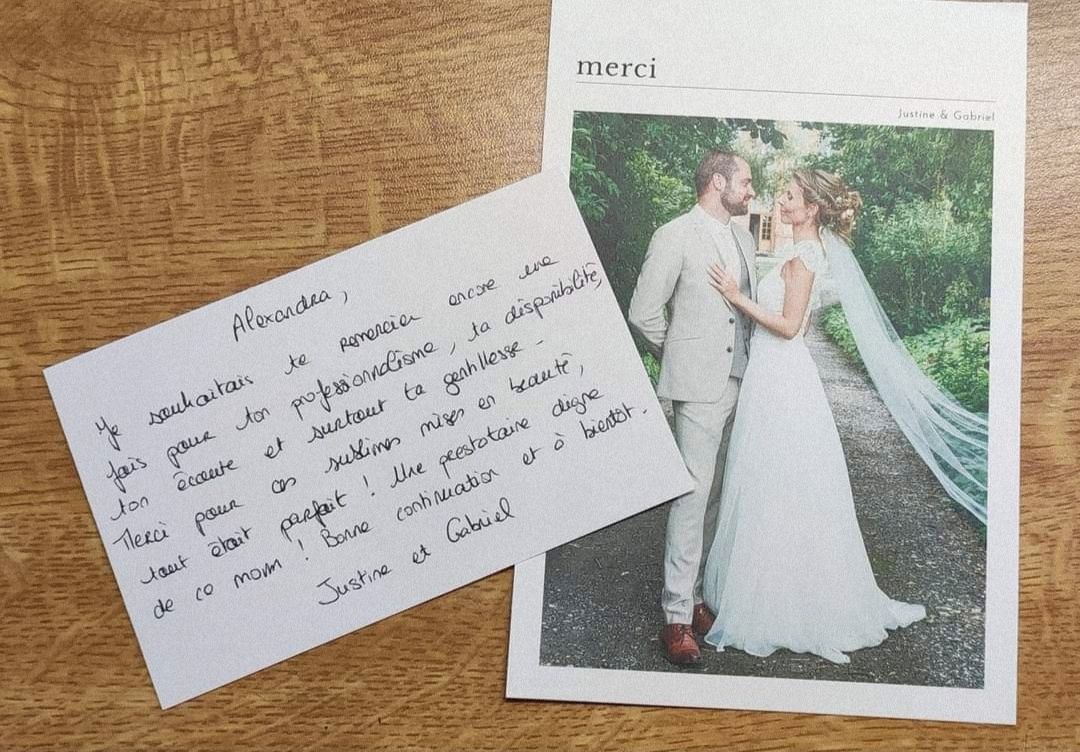 merci
Justine & Gabriel
Alexandra,
Je souhaitais te remercier encore une
fois pour ton professionnalisme, ta disponibilité,
ton écoute et surtout ta gentillesse.
Merci pour ces sublimes mises en beauté,
tout était parfait ! Une prestataire digne
de ce nom ! Bonne continuation et à bientôt.
Justine et Gabriel